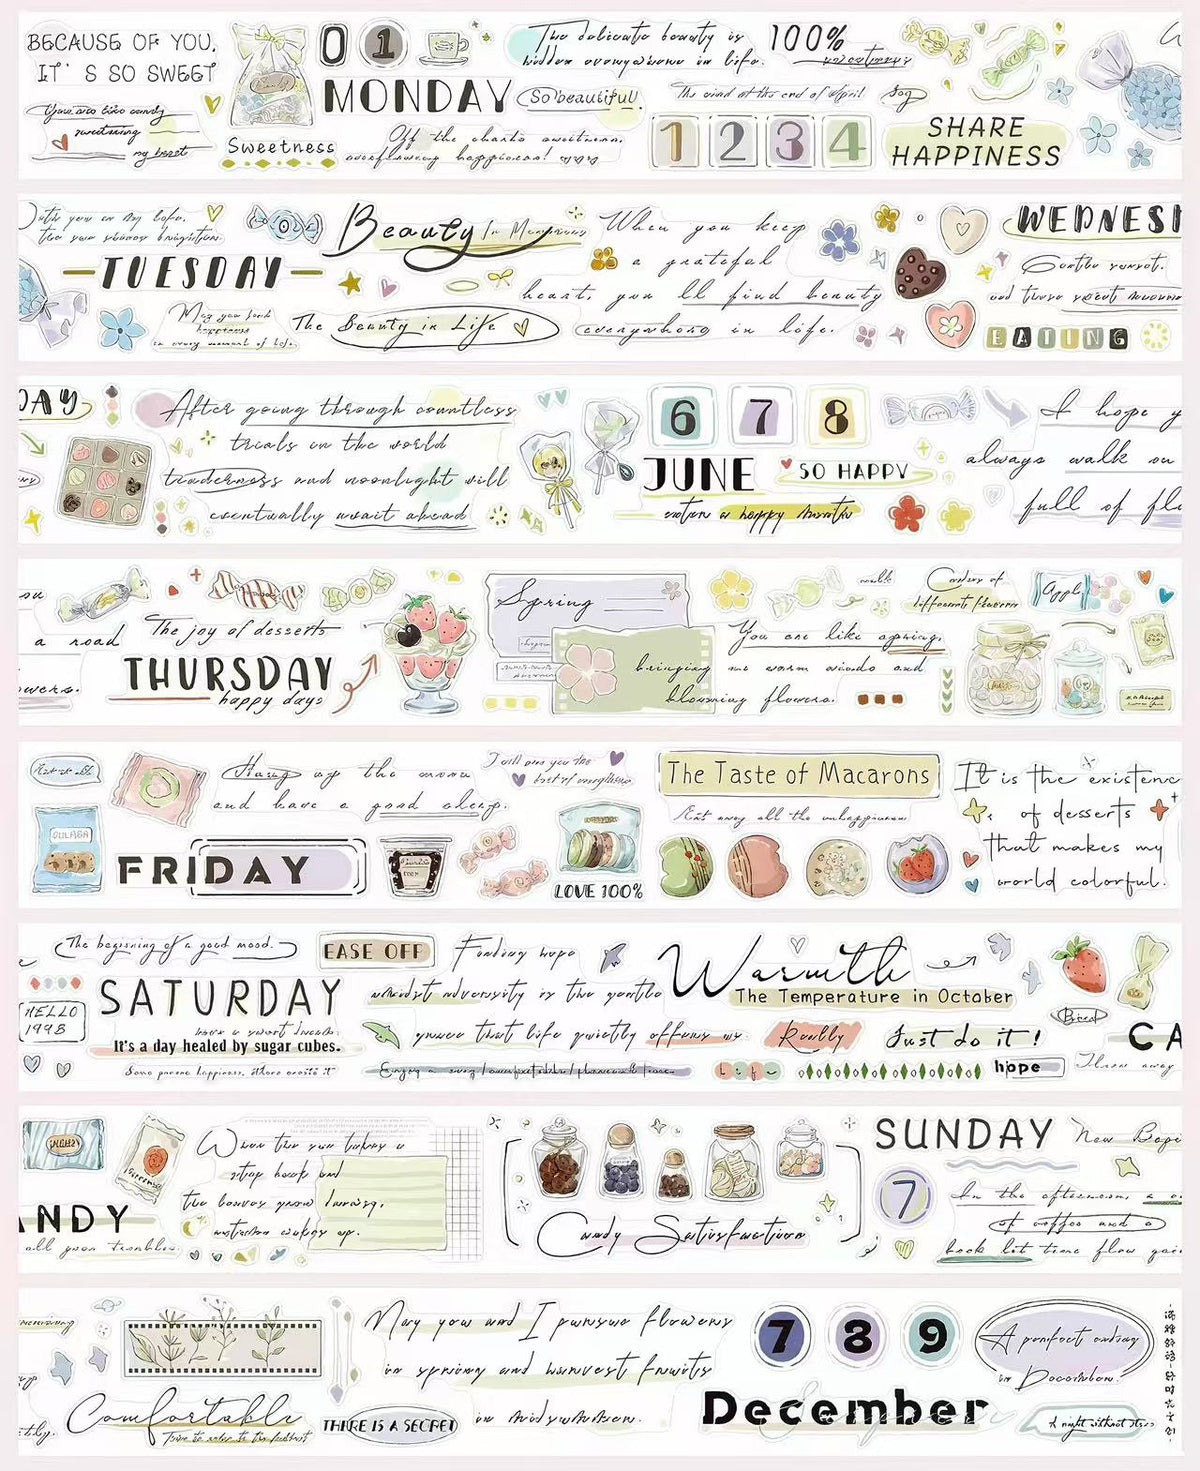 BECAUSE OF YOU,
IT'S SO SWEET
You are like candy
sweetening
my heart
Sweetness
0 1
MONDAY
So beautiful!
The delicate beauty is
hidden everywhere in life.
100%
sweetness
Off the charts sweetness,
overflowing happiness!
The wind at the end of April
Joy
1 2 3 4
SHARE
HAPPINESS
With you in my life,
TUESDAY
May you find
happiness
in every moment of life.
Beauty In Memories
The Beauty in Life
When you keep
a grateful
heart, you'll find beauty
everywhere in life.
WEDNES
Gentle sunset,
and those sweet moments
EATING
DAY
After going through countless
trials in the world
tenderness and moonlight will
eventually await ahead
6 7 8
JUNE
SO HAPPY
enten a happy month
I hope y
always walk on
full of flo
ou
a road
owers.
The joy of desserts
THURSDAY
happy days
Spring
You are like spring,
bringing me warm winds and
blooming flowers.
Candies of
different flavors
Apple
Hang up the moon
and have a good sleep.
FRIDAY
I will owe you the
best of everything
LOVE 100%
The Taste of Macarons
Eat away all the unhappiness
It is the existenc
of desserts
that makes my
world colorful.
The beginning of a good mood.
EASE OFF
HELLO
1998
SATURDAY
have a sweet dream.
It's a day healed by sugar cubes.
Some pursue happiness, others create it
Finding hope
amidst adversity is the gentle
grace that life quietly offers us.
Warmth
The Temperature in October
Really
Just do it!
Life
hope
Bread
CA
Throw away
NDY
all your troubles
When the sun takes a
step back and
the leaves grow drowsy,
autumn wakes up.
Candy Satisfaction
SUNDAY
New Begi
7
In the afternoon, a c
of coffee and a
book let time flow qui
etly.
Comfortable
THERE IS A SECRET
May you and I pursue flowers
in spring and harvest fruits
in midautumn.
7 8 9
December
A perfect ending
in December.
A night without stars